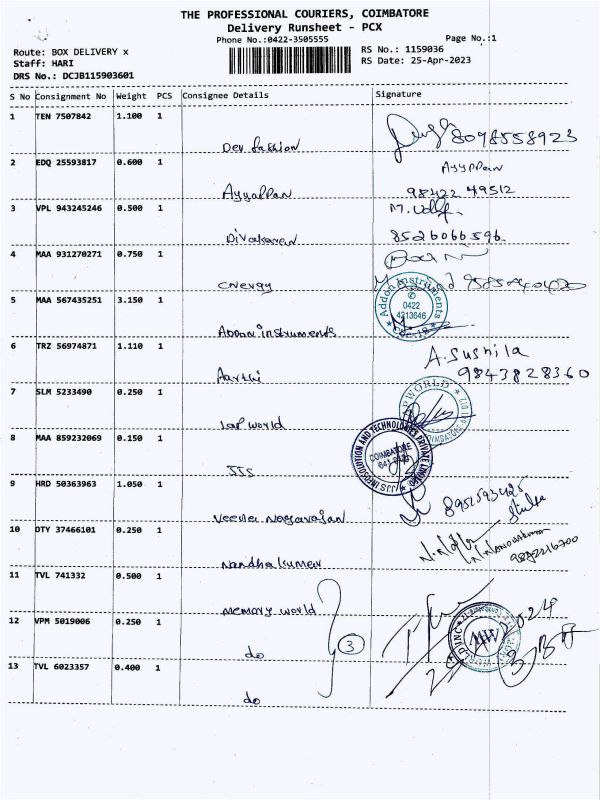 THE PROFESSIONAL COURIERS, COIMBATORE
Delivery Runsheet - PCX
Phone No.:0422-3505555
Page No.:1
Route: BOX DELIVERY x
Staff: HARI
DRS No.: DCJB115903601
RS No.: 1159036
RS Date: 25-Apr-2023
S No Consignment No Weight PCS Consignee Details Signature
1 TEN 7507842 1.100 1
Dev fashion 8098558923
2 EDQ 25593817 0.600 1 Ayyappan
Ayyappan 98422 49512
3 VPL 943245246 0.500 1
Divakaran 8526066596
4 MAA 931270271 0.750 1
Cnergy
5 MAA 567435251 3.150 1
Addon Instruments
0422
4213646
Addon instruments
6 TRZ 56974871 1.110 1 A. Sushila
Aarthi 9843828360
7 SLM 5233490 0.250 1
Lap world
8 MAA 859232069 0.150 1
JJS INFOSOLUTION AND TECHNOLOGIES PRIVATE LIMITED
COIMBATORE
JJS
9 HRD 50363963 1.050 1
Veena Nagarajan
10 DTY 37466101 0.250 1
Nandhakumar
11 TVL 741332 0.500 1
memory world
12 VPM 5019006 0.250 1
do 3
MW
13 TVL 6023357 0.400 1
do